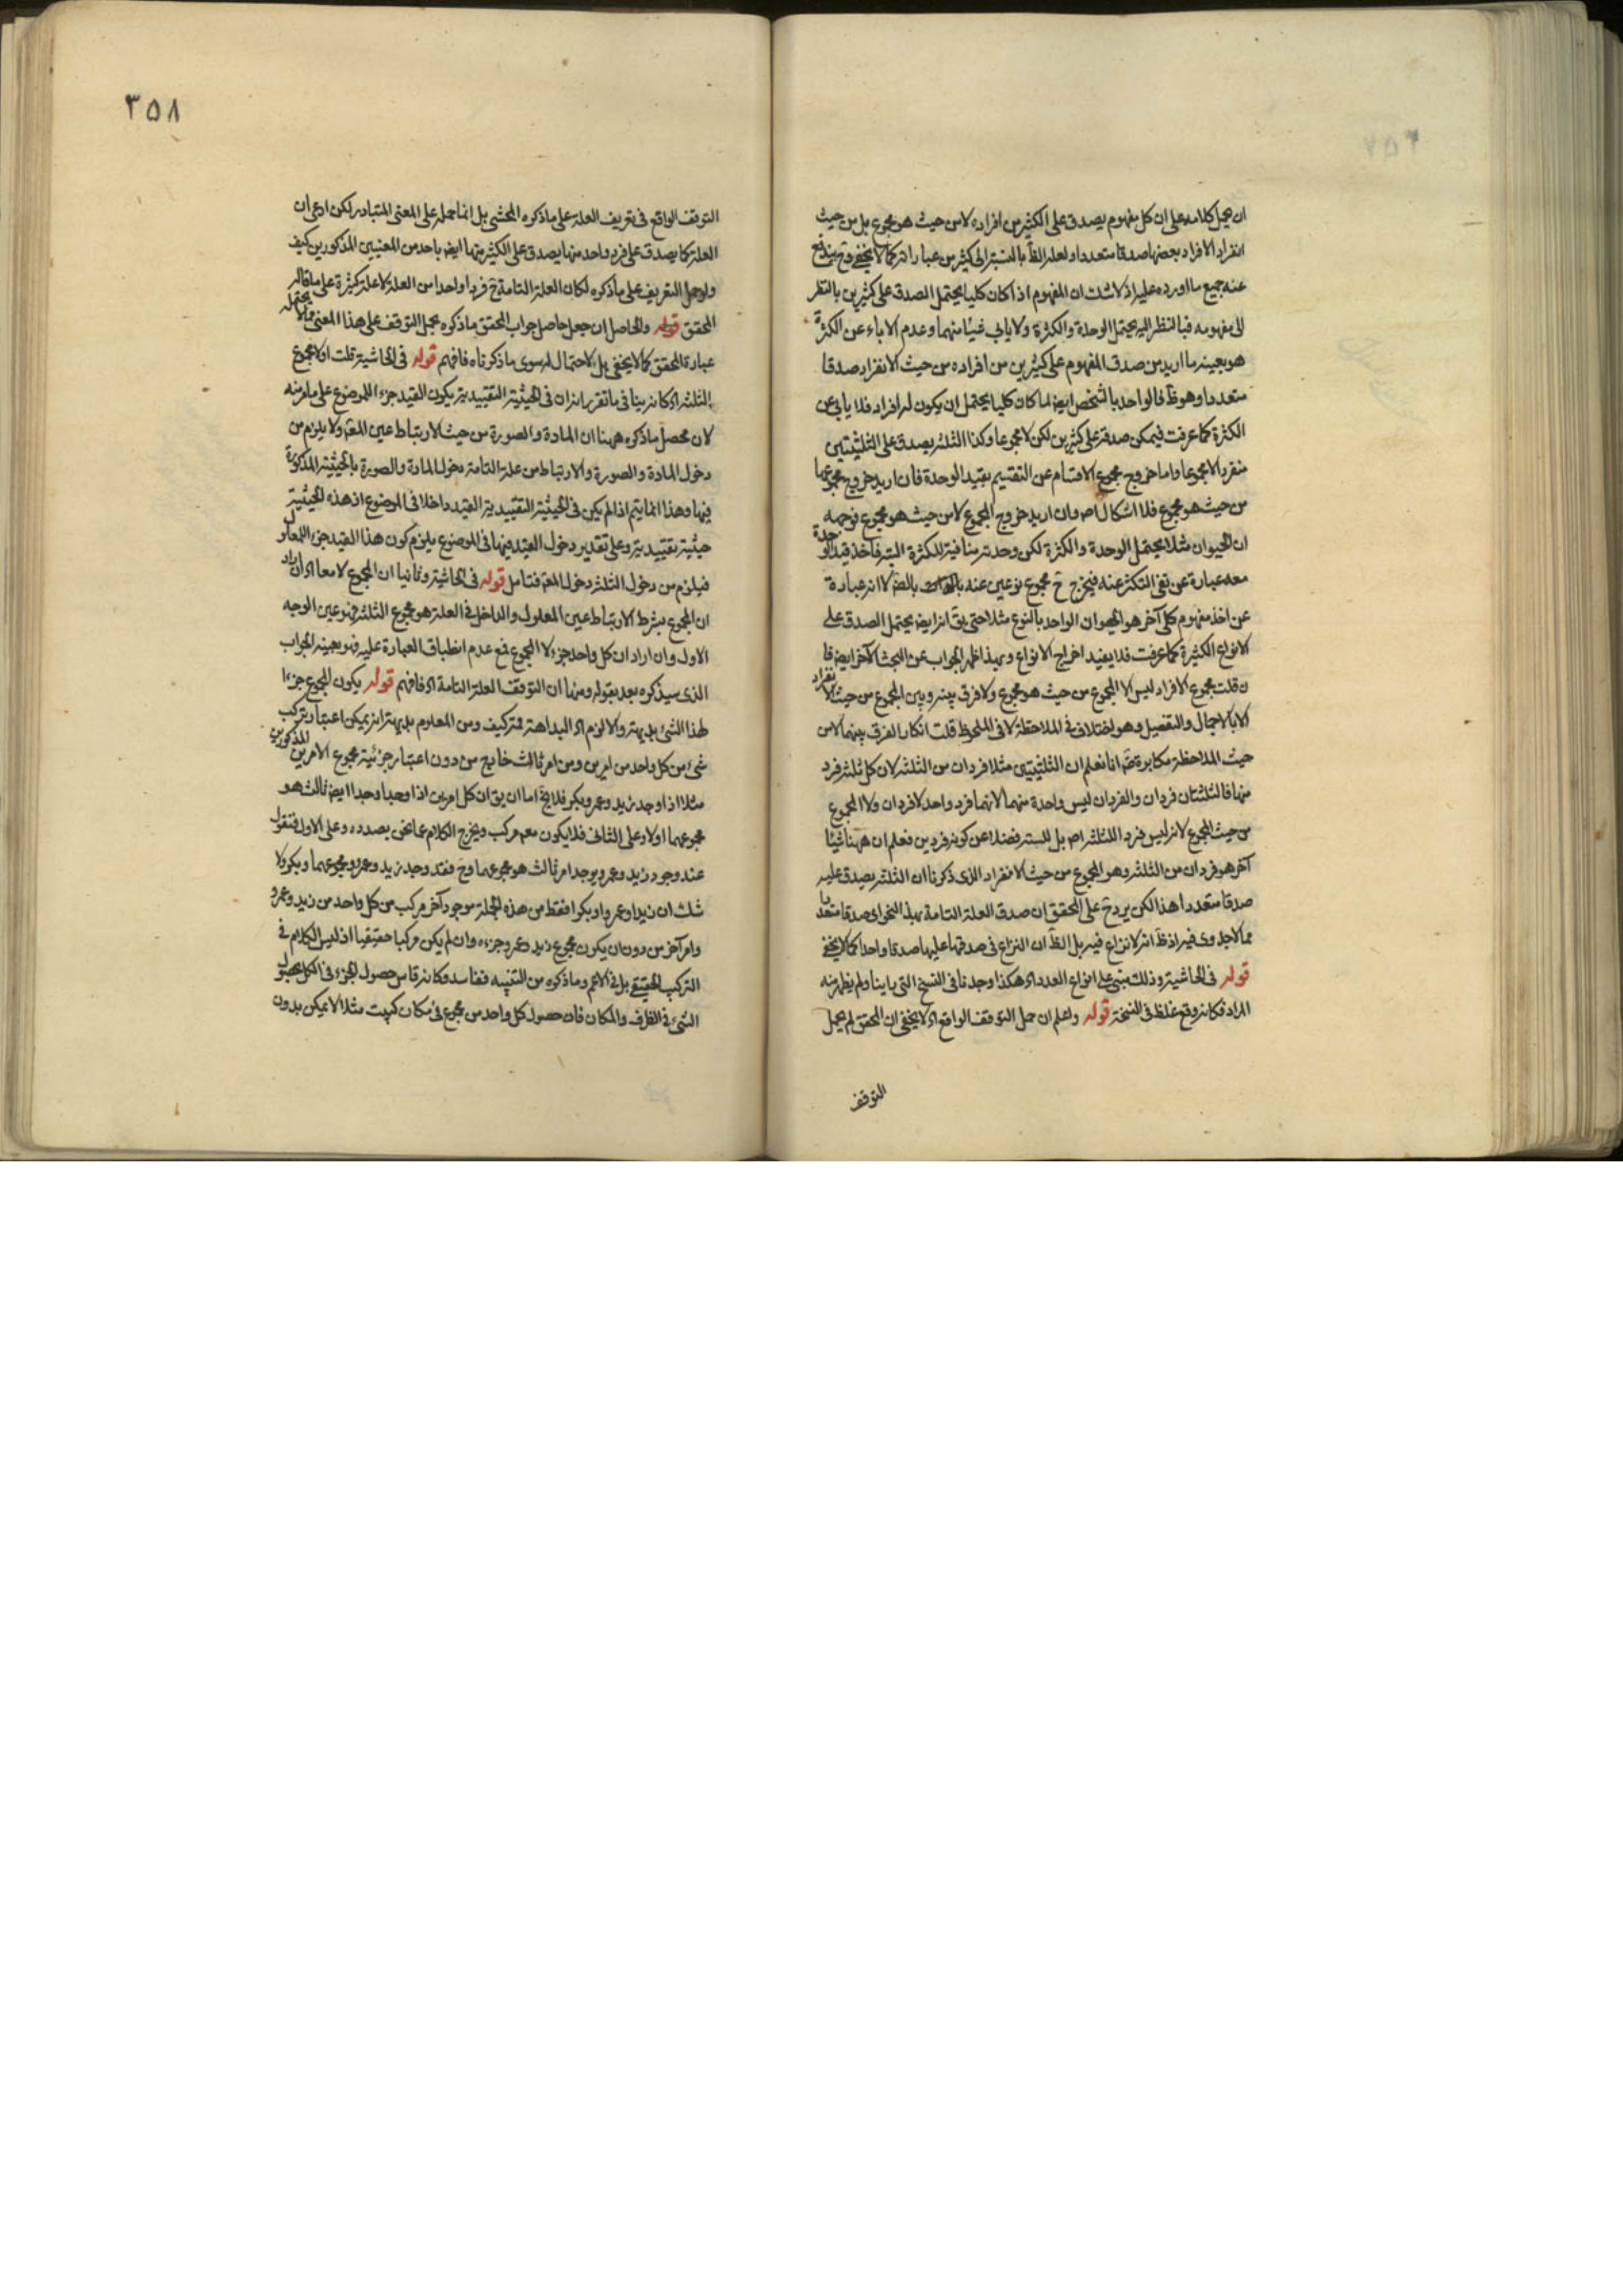 ان يحمل كلامه على ان كل مفهوم يصدق على الكثير من افراده لا من حيث هو مجموع بل من حيث
انفراد الافراد بعضها صدقا متعددا ولعله الظ بالنسبة الى كثير من عباراته كما لا يخفى وح يندفع
عنه جميع ما اورده عليه اذ لا شك ان المفهوم اذا كان كليا يحتمل الصدق على كثيرين بالنظر
الى مفهومه فبالنظر اليه يحتمل الوحدة والكثرة ولا يابى شيئا منهما وعدم الاباء عن الكثرة
هو بعينه ما اريد من صدق المفهوم على كثيرين من افراده من حيث الانفراد صدقا
متعددا وهو ظ فالواحد بالشخص ايضا لما كان كليا يحتمل ان يكون له افراد فلا يابى عن
الكثرة كما عرفت فيمكن صدقه على كثيرين لكن لا مجموعا وكذا الثلثة يصدق على الثلثيتين
منفردا لا مجموعا واما خروج مجموع الاقسام عن التقسيم بقيد الوحدة فان اريد خروج مجموعهما
من حيث هو مجموع فلا اشكال اصلا وان اريد خروج المجموع لا من حيث هو مجموع فوجهه
ان الحيوان مثلا يحتمل الوحدة والكثرة لكن وحدته منافية للكثرة البتة فاخذ قيد الوحدة
معه عبارة عن نفى التكثر عنه فيخرج ح مجموع نوعين عنه بالضرورة لا انه عبارة
عن اخذ مفهوم كلى آخر هو الحيوان الواحد بالنوع مثلا حتى يق انه ايضا يحتمل الصدق على
الانواع الكثيرة كما عرفت فلا يفيد اخراج الانواع وبهذا ظهر الجواب عن البحث الآخر ايضا فا
ن قلت مجموع الافراد ليس الا المجموع من حيث هو مجموع ولا فرق بينه وبين المجموع من حيث الانفراد
الا بالاجمال والتفصيل وهو اختلاف فى الملاحظة لا فى الملحوظ قلت انكار الفرق بينهما لا من
حيث الملاحظة مكابرة انا نعلم ان الثلثيتين مثلا فردان من الثلثة لان كل ثلثة فرد
منها فالثلثتان فردان والفردان ليس واحدة منهما لانهما فرد واحد لا فردان ولا المجموع
من حيث المجموع لانه ليس فردا للثلثة اصلا بل للستة فضلا عن كونه فردين فعلم ان ههنا شيئا
آخر هو فردان من الثلثة وهو المجموع من حيث الانفراد الذى ذكرنا ان الثلثة يصدق عليه
صدقا متعددا هذا لكن يرد ح على المحقق ان صدق العلة التامة بهذا النحو اى صدقا متعددا
مما لا جدوى فيه اذ ظ انه لا نزاع فيه بل الظ ان النزاع فى صدقها عليها صدقا واحدا كما لا يخفى
قوله فى الحاشية وذلك مبنى على انواع العدد اه هكذا وجدنا فى النسخ التى رايناه ولم يظهر منه
المراد فكانه وقع غلط فى النسخة قوله واعلم ان حمل التوقف الواقع اه لا يخفى ان المحقق لم يحمل
التوقف
٣٥٨
التوقف الواقع فى تعريف العلة على ما ذكره المحشى بل انما حمله على المعنى المتبادر لكن ادعى ان
العلة كما يصدق على فرد واحد منها يصدق على الكثير منها ايضا باحد من المعنيين المذكورين كيف
ولو حمل التعريف على ما ذكره لكان العلة التامة ح فردا واحدا من العلة لا علة كثيرة على ما قاله
المحقق قوله والحاصل ان جعل حاصل جواب المحقق ما ذكره بحمل التوقف على هذا المعنى مما لا يحتمله
عبارة المحقق كما لا يخفى بل لا احتمال له سوى ما ذكرناه فافهم قوله فى الحاشية قلت اولا مجموع
الثلثة اه كانه ينافى ما تقرر انه ان فى الحيثية التقييدية يكون القيد جزء اللموضوع على ما مر منه
لان محصل ما ذكره ههنا ان المادة والصورة من حيث الارتباط عين المعلول ولا يلزم من
دخول المادة والصورة والارتباط من علة التامة دخول المادة والصورة بالحيثية المذكورة
فيها وهذا انما يتم اذا لم يكن فى الحيثية التقييدية القيد داخلا فى الموضوع اذ هذه الحيثية
حيثية تقييدية وعلى تقدير دخول القيد فيها فى الموضوع يلزم كون هذا القيد جزء المعلول
فيلزم من دخول الثلثة دخول المعلول فتامل قوله فى الحاشية وثانيا ان المجموع لا معا اه ان اراد
ان المجموع بشرط الارتباط عين المعلول والداخل فى العلة هو مجموع الثلثة فهو عين الوجه
الاول وان اراد ان كل واحد جزء لا المجموع فمع عدم انطباق العبارة عليه فهو بعينه الجواب
الذى سيذكره بعد بقوله ومنها ان التوقف العلة التامة اه فافهم قوله يكون المجموع جزءا
لهذا الشئ بديهة والا لزم اه البداهة ممنوعة كيف ومن المعلوم بديهة انه يمكن اعتبار تركيب
شئ من كل واحد من امرين ومن امر ثالث خارج من دون اعتبار جزئية مجموع الامرين المذكورين
مثلا اذا وجد زيد وعمرو وبكر فلا يخ اما ان يق ان كل امرين اذا وجدا وجدا ايضا ثالث هو
مجموعهما اولا وعلى الثانى فلا يكون معهم مركب ويخرج الكلام عما نحن بصدده وعلى الاول فنقول
عند وجود زيد وعمرو يوجد امر ثالث هو مجموعهما وح فقد وجد زيد وعمرو ومجموعهما وبكر ولا
شك ان زيدا وعمروا وبكرا فقط من هذه الجملة موجود آخر مركب من كل واحد من زيد وعمرو
وامر آخر من دون ان يكون مجموع زيد وعمرو جزءه وان لم يكن مركبا حقيقيا اذ ليس الكلام فى
التركب الحقيقى بل فى الاعم وما ذكره من التنبيه ففاسد وكانه قاس حصول الجزء فى الكل بحصول
الشئ فى الظرف والمكان فان حصول كل واحد من مجموع فى مكان كبيت مثلا لا يمكن بدون